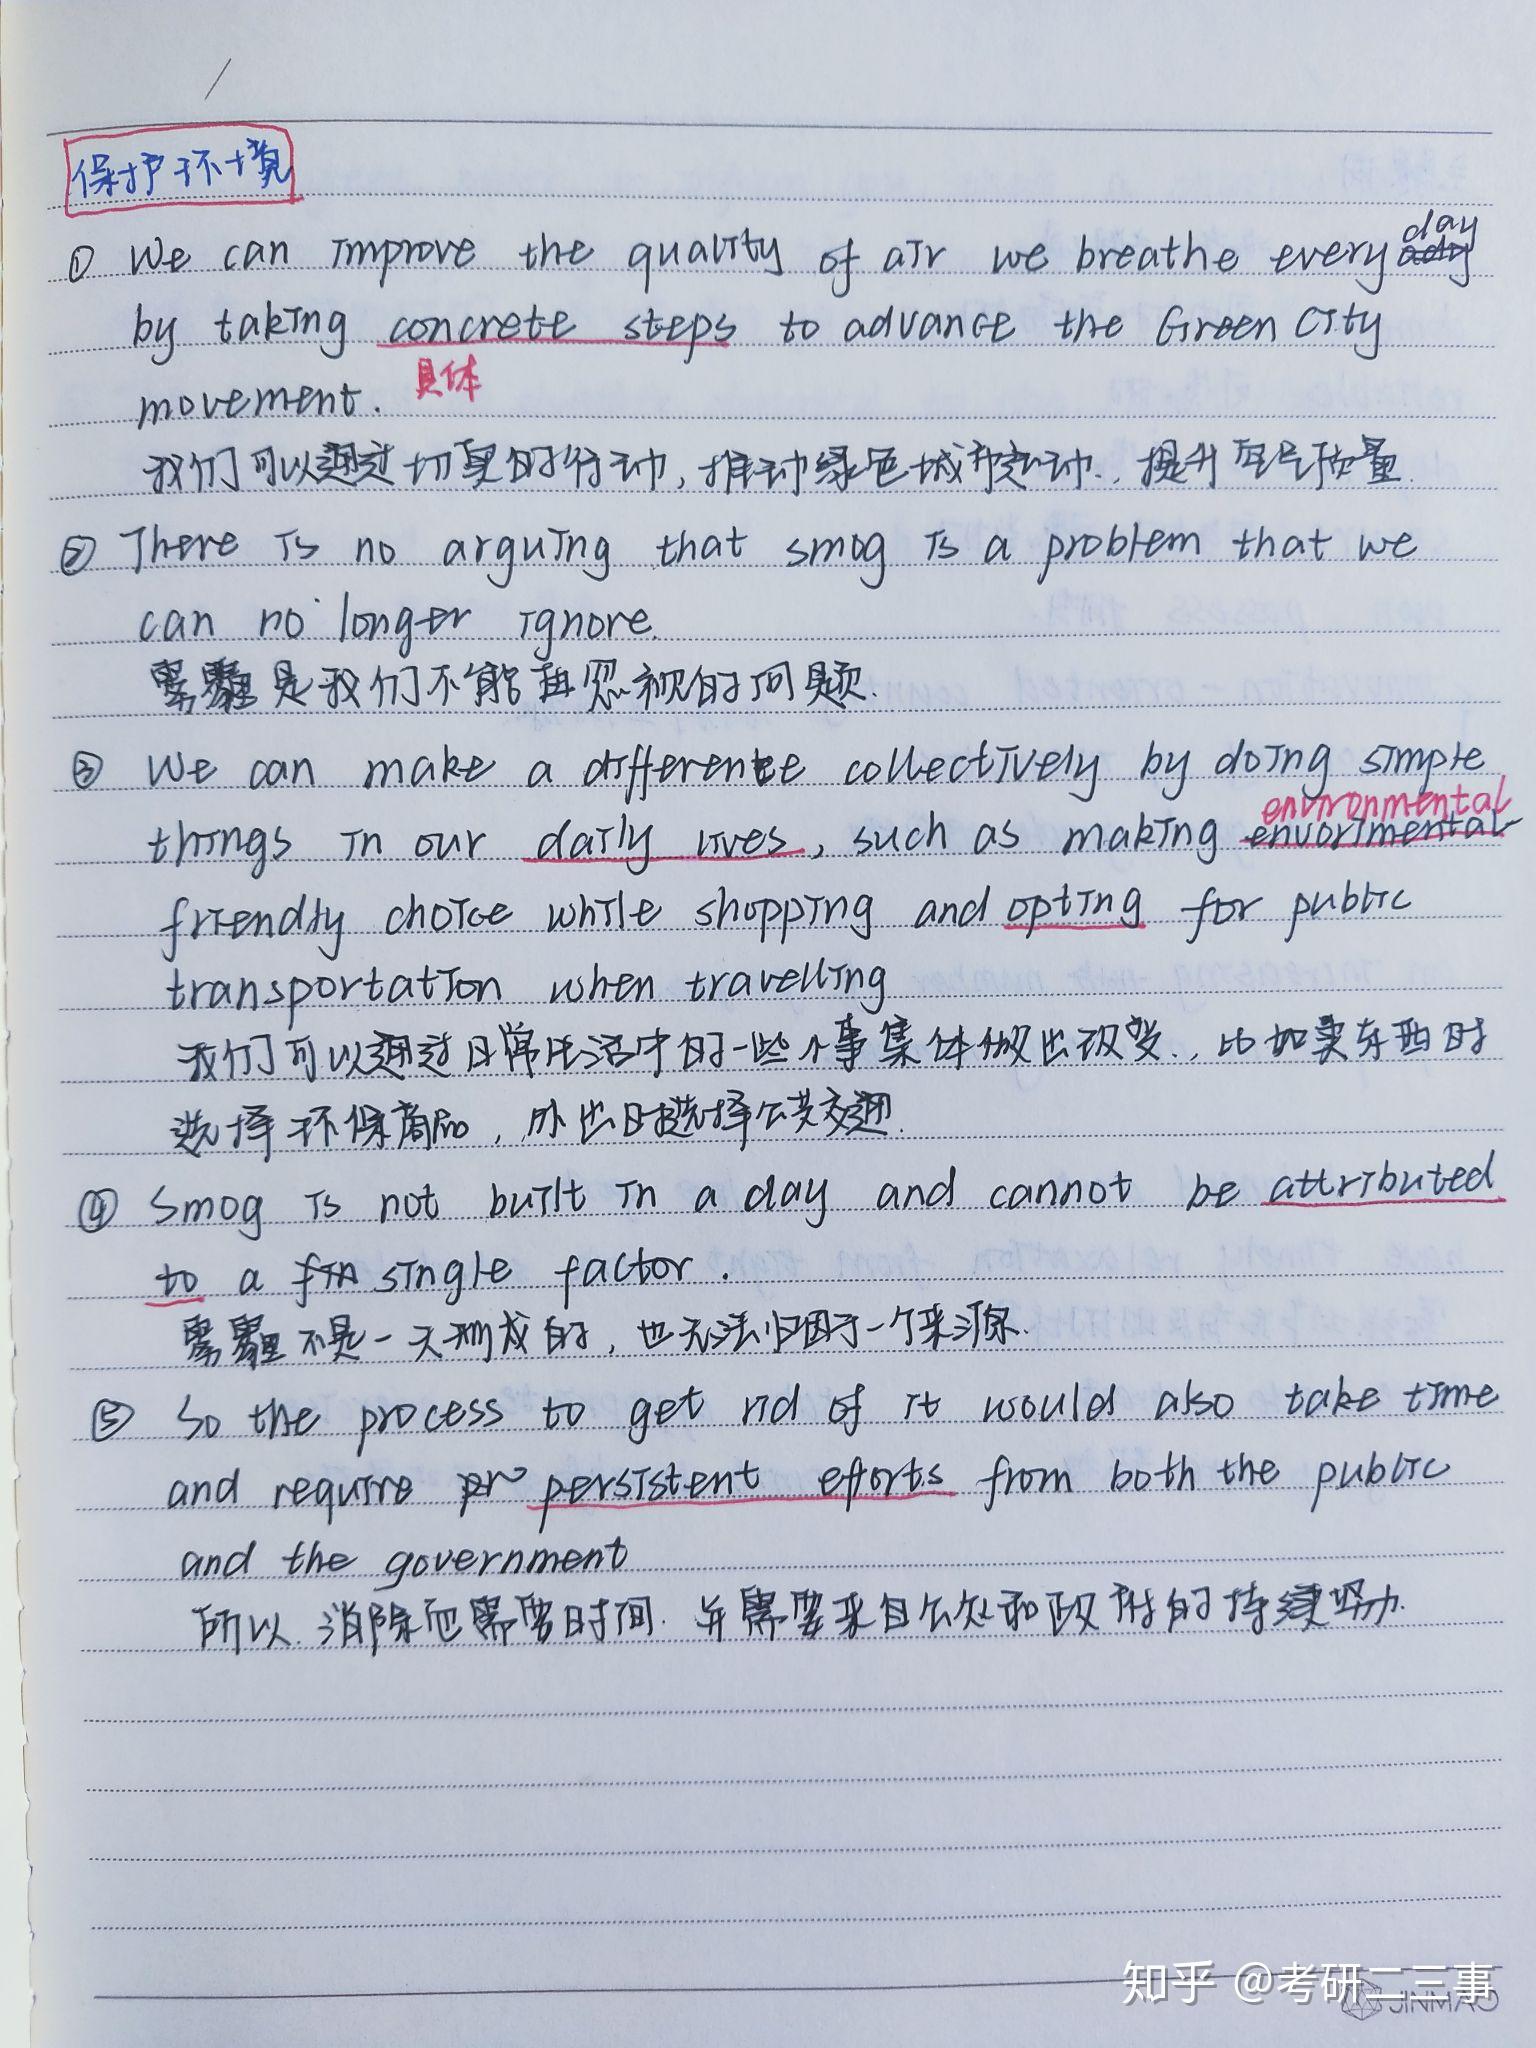 保护环境
① We can improve the quality of air we breathe every day
by taking concrete steps to advance the Green City
具体
movement.
我们可以通过切实的行动,推动绿色城市运动.,提升空气质量.
② There is no arguing that smog is a problem that we
can no longer ignore.
雾霾是我们不能再忽视的问题.
③ We can make a difference collectively by doing simple
environmental
things in our daily lives, such as making envorimental
friendly choice while shopping and opting for public
transportation when travelling
我们可以通过日常生活中的一些小事集体做出改变.,比如买东西时
选择环保商品,外出时选择公共交通.
④ Smog is not built in a day and cannot be attributed
to a single factor.
雾霾不是一天形成的,也无法归因于一个来源.
⑤ So the process to get rid of it would also take time
and require persistent efforts from both the public
and the government
所以.消除它需要时间.并需要来自公众和政府的持续努力.
知乎 @考研二三事
JINMAO